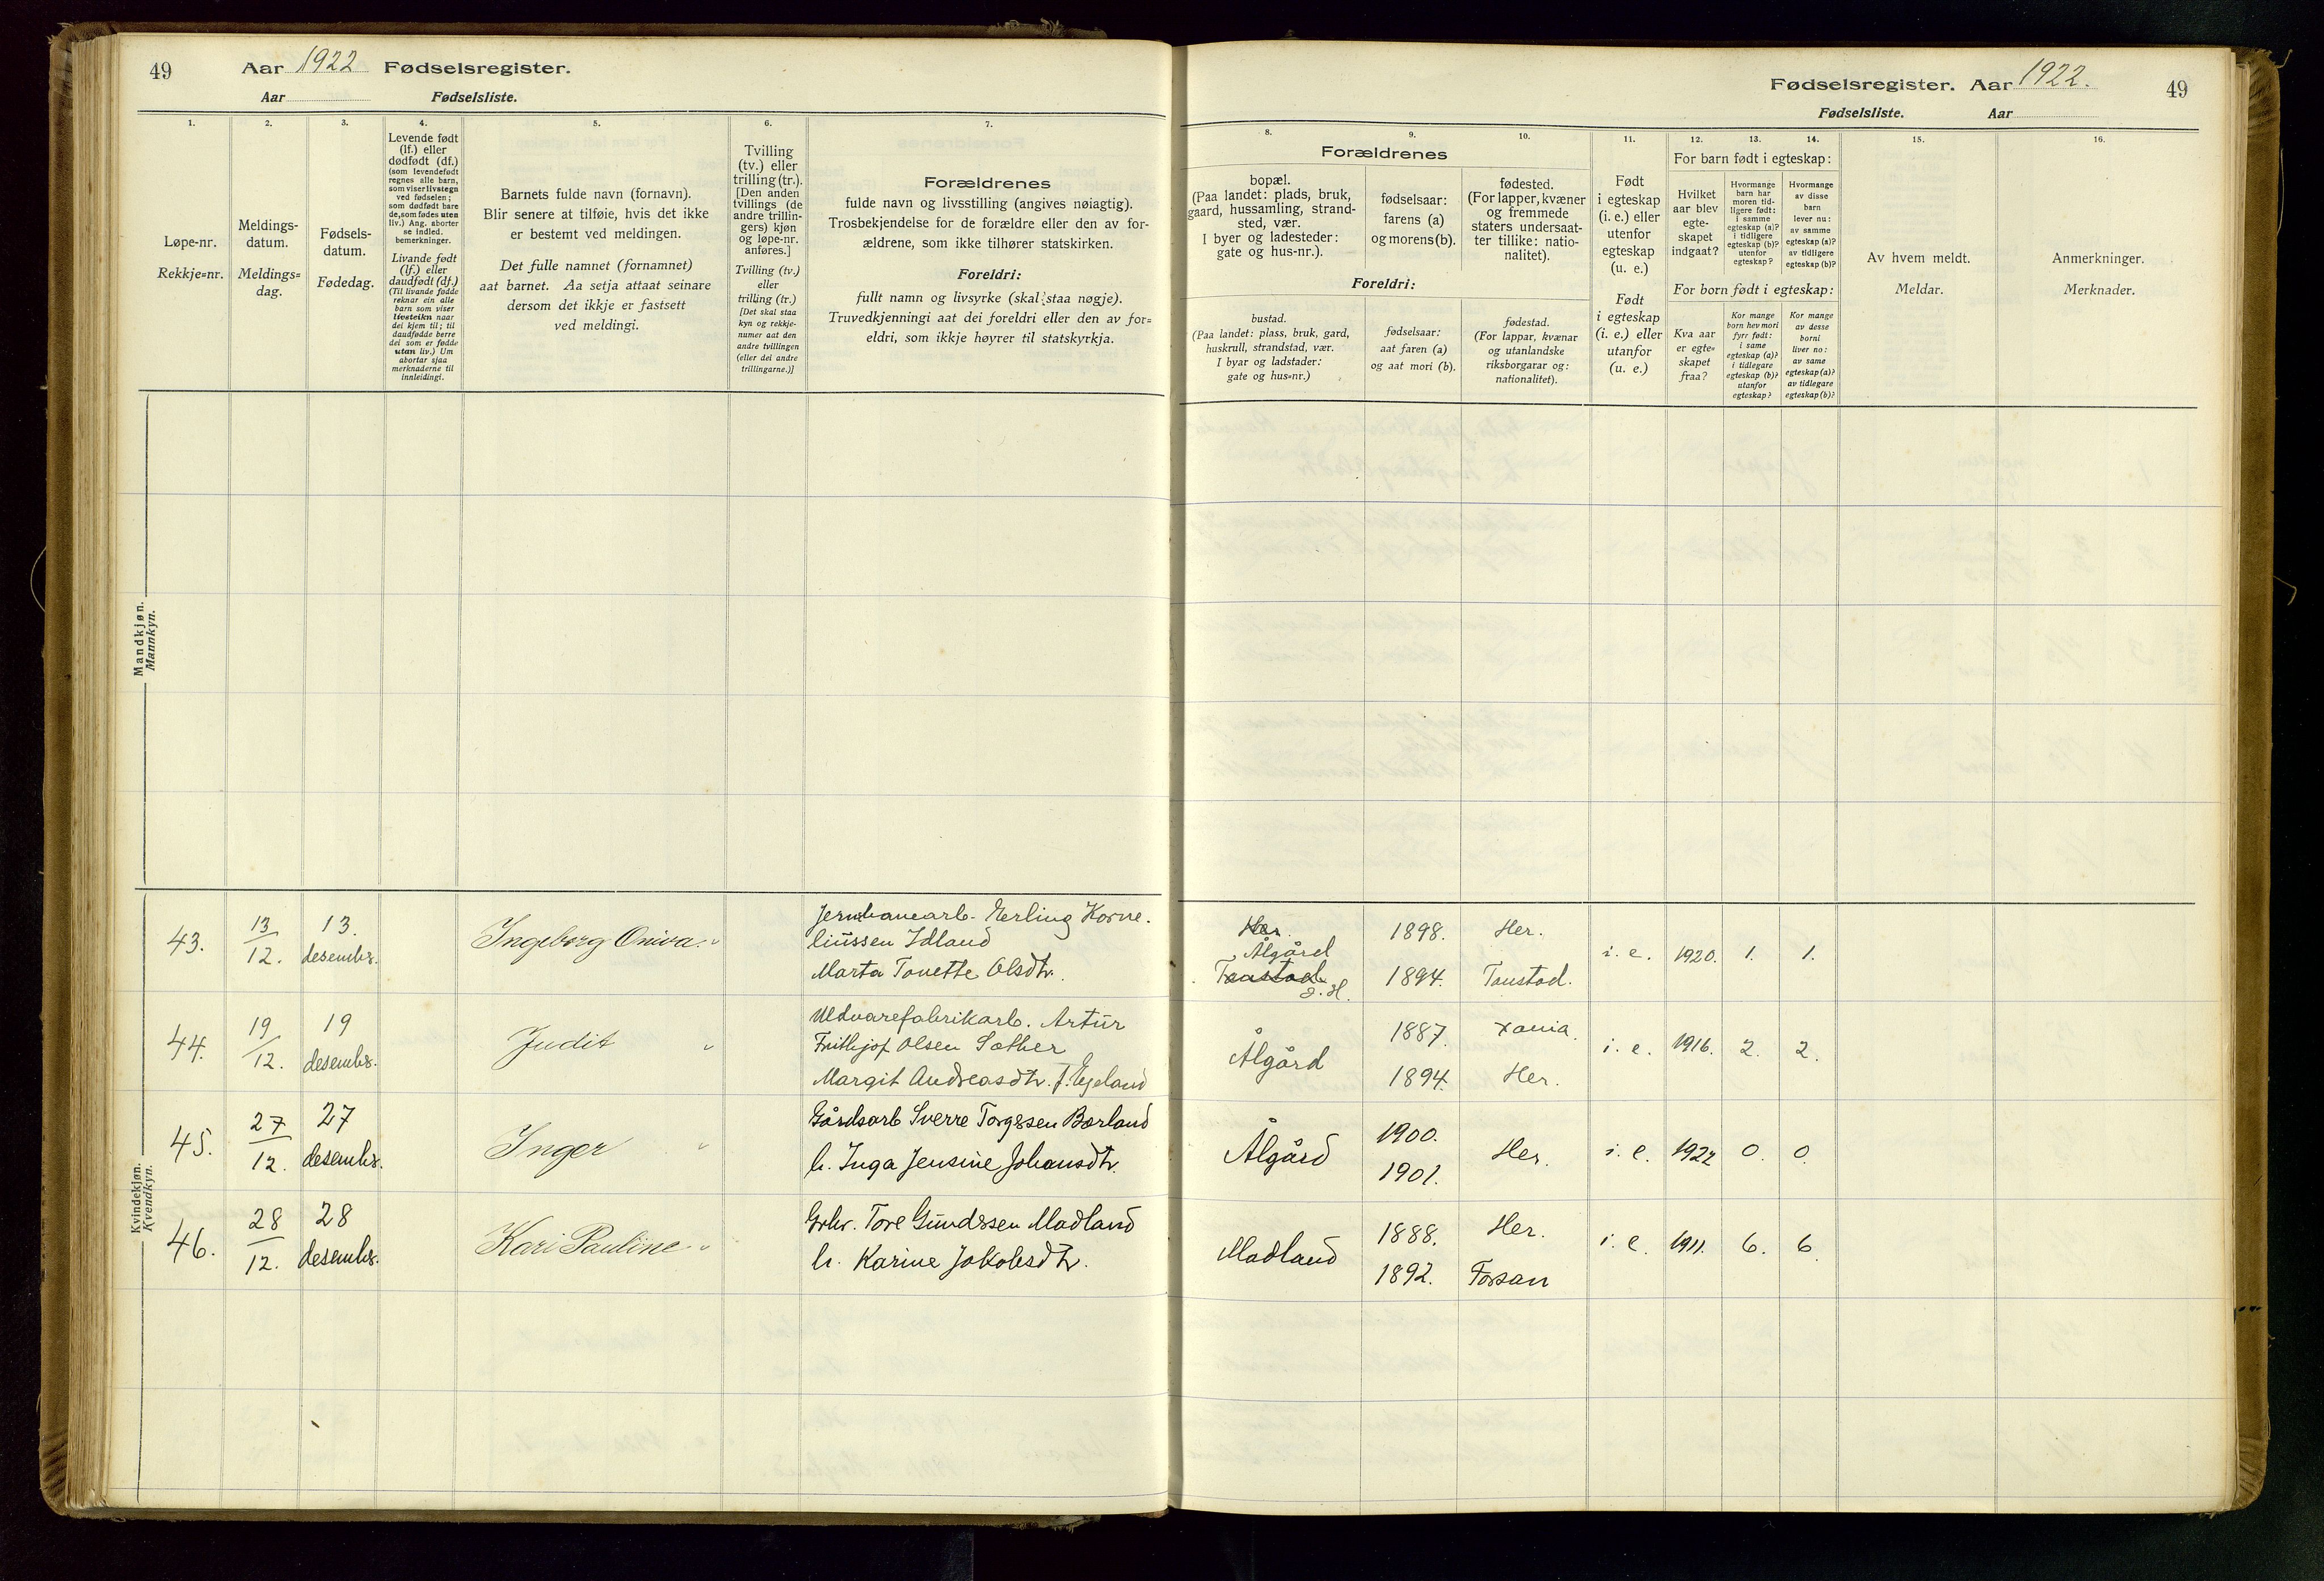 49
Aar 1922 Fødselsregister.
Aar Fødselsliste.
1.
2.
3.
4.
5.
6.
7.
Løpe-nr.
Rekkje=nr.
Meldings-
datum.
Meldings=
dag.
Fødsels-
datum.
Fødedag.
Levende født
(lf.) eller
dødfødt (df.)
(som levendefødt
regnes alle barn,
som viser livstegn
ved fødselen;
som dødfødt bare
de, som fødes uten
liv.) Ang. aborter
se indled.
bemerkninger.
Livande født
(lf.) eller
daudfødt (df.)
(Til livande fødde
reknar ein alle
barn som viser
livsteikn naar
dei kjem til; til
daudfødde berre
dei som er fødde
utan liv.) Um
abortar sjaa
merknaderne til
innleidingi.
Barnets fulde navn (fornavn).
Blir senere at tilføie, hvis det ikke
er bestemt ved meldingen.
Det fulle namnet (fornamnet)
aat barnet. Aa setja attaat seinare
dersom det ikkje er fastsett
ved meldingi.
Tvilling
(tv.) eller
trilling (tr.).
[Den anden
tvillings (de
andre trillin-
gers) kjøn
og løpe-nr.
anføres.]
Tvilling (tv.)
eller
trilling (tr.)
[Det skal staa
kyn og rekkje-
numer aat den
andre tvillingen
(eller dei andre
trillingarne.)]
Forældrenes
fulde navn og livsstilling (angives nøiagtig).
Trosbekjendelse for de forældre eller den av for-
ældrene, som ikke tilhører statskirken.
Foreldri:
fullt namn og livsyrke (skal staa nøgje).
Truvedkjenningi aat dei foreldri eller den av for=
eldri, som ikkje høyrer til statskyrkja.
Mandkjøn.
Mannkyn.
Kvindekjøn.
Kvendkyn.
43.
13
12.
13.
desembr.
Ingeborg Oniva "
Jernbanearb. Erling Korne-
liussen Idland
Marta Tonette Olsdtr.
44.
19
12.
19
desembr.
Judit "
Uldvarefabrikarb. Artur
Frithjof Olsen Sæther
Margit Andreasdtr. f. Egeland
45.
27
12.
27
desembr.
Inger "
Gårdsarb Sverre Torgersen Bærland
h. Inga Jensine Johansdtr.
46.
28
12.
28
desembr.
Kari Pauline "
Grbr. Tore Gundersen Madland
h. Karine Jakobsdtr.
Fødselsregister. Aar 1922.
49
Fødselsliste. Aar
8.
9.
10.
11.
12.
13.
14.
15.
16.
Forældrenes
bopæl.
(Paa landet: plads, bruk,
gaard, hussamling, strand-
sted, vær.
I byer og ladesteder:
gate og hus-nr.).
fødselsaar:
farens (a)
og morens (b).
fødested.
(For lapper, kvæner
og fremmede
staters undersaat-
ter tillike: natio-
nalitet).
Foreldri:
bustad.
(Paa landet: plass, bruk, gard,
huskrull, strandstad, vær.
I byar og ladstader:
gate og hus=nr.)
fødselsaar:
aat faren (a)
og aat mori (b).
fødestad.
(For lappar, kvænar
og utanlandske
riksborgarar og:
nationalitet).
Født
i egteskap
(i. e.) eller
utenfor
egteskap
(u. e.)
Født
i egteskap
(i. e.) eller
utanfor
(u. e.)
For barn født i egteskap:
Hvilket
aar blev
egte-
skapet
indgaat?
Hvormange
barn har
moren tid-
ligere født:
i samme
egteskap (a)?
i tidligere
egteskap (b)?
utenfor
egteskap?
Hvormange
av disse
barn
lever nu:
av samme
egteskap (a)?
av tidligere
egteskap (b)?
For born født i egteskap:
Kva aar
er egte-
skapet
fraa?
Kor mange
born hev mori
fyrr født:
i same
egteskap (a)?
i tidlegare
egteskap (b)?
utanfor
egteskap?
Kor mange
av desse
borni
liver no:
av same
egteskap (a)?
av tidlegare
egteskap (b)?
Av hvem meldt.
Meldar.
Anmerkninger.
Merknader.
Her.
Ålgård
Taustad
g. H.
1898.
1894.
Her.
Taustad.
i. e.
1920.
1.
1.
Ålgård
1887.
1894.
Xania.
Her.
i. e.
1916.
2.
2.
Ålgård
1900.
1901.
Her.
i. e.
1922
0.
0.
Madland
1888.
1892.
Her.
Forsan
i. e.
1911.
6.
6.